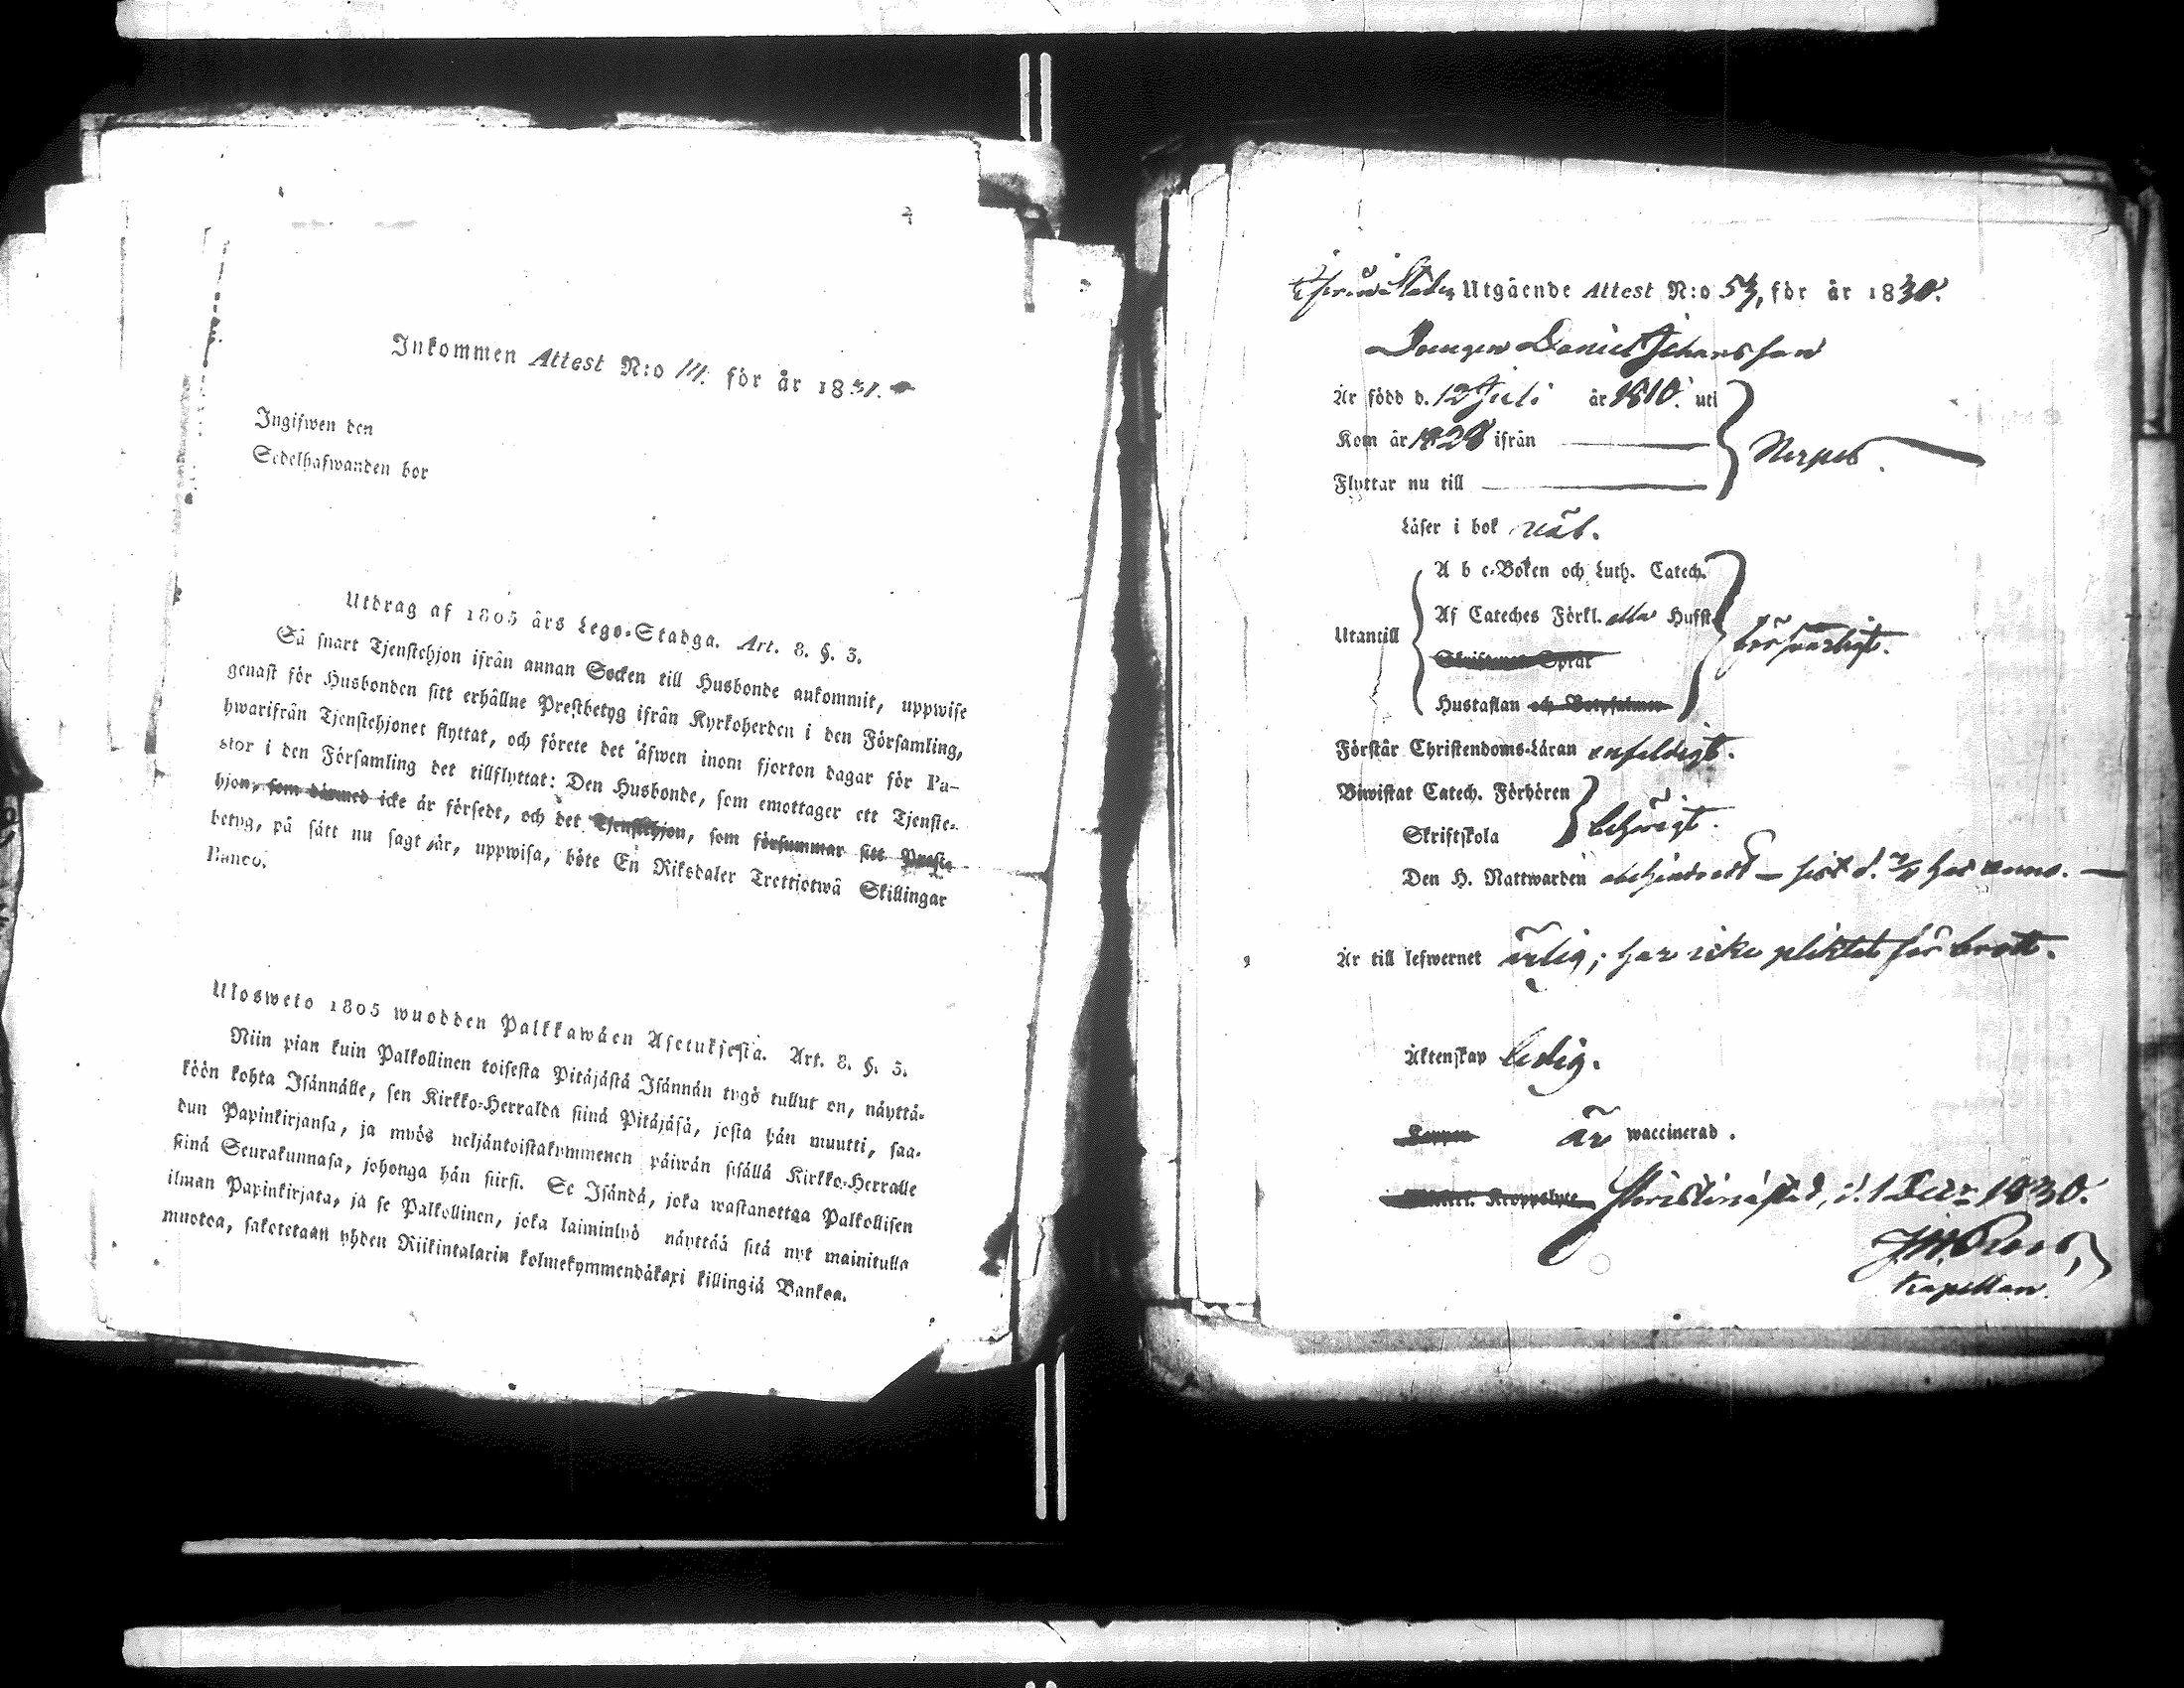 Inkommen Attest N:o 14. för år 1831.
Ingifwen den
Sedelhafwanden bor
Utdrag af 1805 års Lego-Stadga. Art. 8. §. 3.
Så snart Tjenstehjon ifrån annan Socken till Husbonde ankommit, uppwise
genast för Husbonden sitt erhållne Prestbetyg ifrån Kyrkoherden i den Församling,
hwarifrån Tjenstehjonet flyttat, och förete det äfwen inom fjorton dagar för Pa-
stor i den Församling det tillflyttat: Den Husbonde, som emottager ett Tjenste-
hjon, som därmed icke är försedt, och det Tjenstehjon, som försummar sitt Prest-
betyg, på sätt nu sagt är, uppwisa, böte En Riksdaler Trettiotwå Skillingar
Banco.
Ulosweto 1805 wuodden Palkkawäen Asetuksesta. Art. 8. §. 3.
Niin pian kuin Palkollinen toisesta Pitäjästä Isännän tygö tullut on, näyttä-
köön kohta Isännälle, sen Kirkko-Herralda siinä Pitäjäsä, josta hän muutti, saa-
dun Papinkirjansa, ja myös neljäntoistakymmenen päiwän sisällä Kirkko-Herralle
siinä Seurakunnasa, johonga hän siirsi. Se Isändä, joka wastanottaa Palkollisen
ilman Papinkirjata, ja se Palkollinen, joka laiminlyö näyttää sitä nyt mainitulla
muotoa, saketetaan yhden Riikintalarin kolmekymmendäkaxi killingiä Bankoa.
Utgående Attest N:o 53, för år 1830.
Drengen Daniel Johansson
Är född d. 12 Juli år 1810. uti
Kom år 1828 ifrån
Nerpes.
Flyttar nu till
Läser i bok väl.
A b c-Boken och Luth. Catech.
Af Cateches Förkl. eller Husst.
Utantill
försvarligt.
Skriftenes Språk
Hustaflan och Botpsalmer
Förstår Christendoms-Läran enfeldigt.
Biwistat Catech. Förhören
behörigt.
Skriftskola
Den H. Nattwarden obehindradt — sist d. hos anno.
Är till lefwernet ärlig; har icke pliktat för brott.
Äktenskap ledig.
Koppor är waccinerad.
Kroppslyte Christinæstad, d. 1 Decr 1830.
Kapellan.